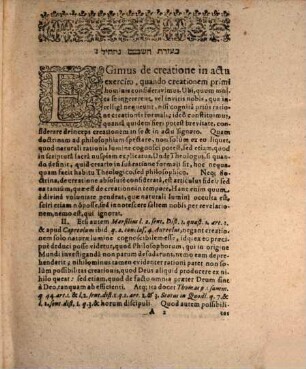 בעזרת השם נתחיל:
EGimus de creatione in actu
exercito, quando creationem primi
hominis consideravimus. Ubi, quum mul-
ta ingererentur, vel invitis nobis, quæ in-
telligi nequirent, nisi cognitâ priùs ratio-
ne creationis formali; ideò constituimus,
quantùm fieri potest breviter, con-
siderare deinceps creationem in se & in actu signato. Quam
doctrinam ad philosophiam spectare, non solùm ex eo liquet,
quod naturali ratione lumine cognoscibilis existat, sed, quod
in scripturis sacris nuspiam explicata. Unde Theologus, si quan-
do definit, quid creatio in substantia formali sit, hoc ne-
quaquam facit Theologicè, sed philosophicè. Neq; hæc
doctrina, de creatione absolutè considerata, est articulus fidei; sed
ea tantùm, quæ est de creatione in tempore. Hanc enim, quum à
divina voluntate pendeat, quæ naturali lumine cognosci non pos-
sit; etiam oportet esse innotescere saltem nobis per revelatio-
nem, nemo est, qui ignorat.
II. Etsi autem Marsilius l. 2. sent. Dist. 1. quæst. 1. art. 1.
& apud Capreolum ibid. q. 1. conclus. 4. Aureolus, negent creatio-
nem solo naturæ lumine cognoscibilem esse, id eò præci-
puè videntur, quòd Philosophorum, qui in origine
Mundi investigandâ non parùm desudarunt, nemo eam depre-
henderit; nihilominus tamen evidenter patet ratione non
solùm possibilitas creationis, quòd Deus aliquid producere ex ni-
hilo queat: sed etiam, quòd de facto omnia præter Deum sint
à Deo, tanquam ab efficienti. Atq; ita docet Thomas p. 1. summ.
q. 44. art. 1. & l. 2. sent. dist. 1. q. 1. art. 2. & 3. Scotus in Quodl. q. 7. &
l. 2. sent. dist. 1. q. 3. & horum discipuli. Quod autem possibili-
A 2
tas